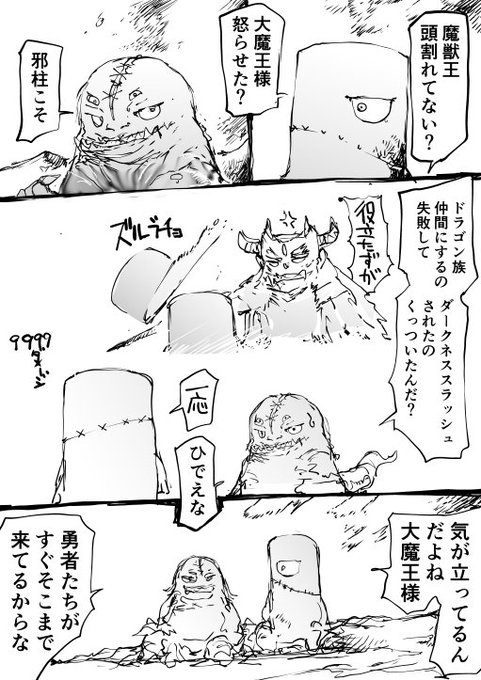 魔獣王
頭割れてない？
大魔王様
怒らせた？
邪柱こそ
ドラゴン族
仲間にするの
失敗して
ダークネススラッシュ
されたの
くっついたんだ？
役立たずが
ズルブチョ
9999
ダメージ
一応
ひでえな
気が立ってるん
だよね
大魔王様
勇者たちが
すぐそこまで
来てるからな